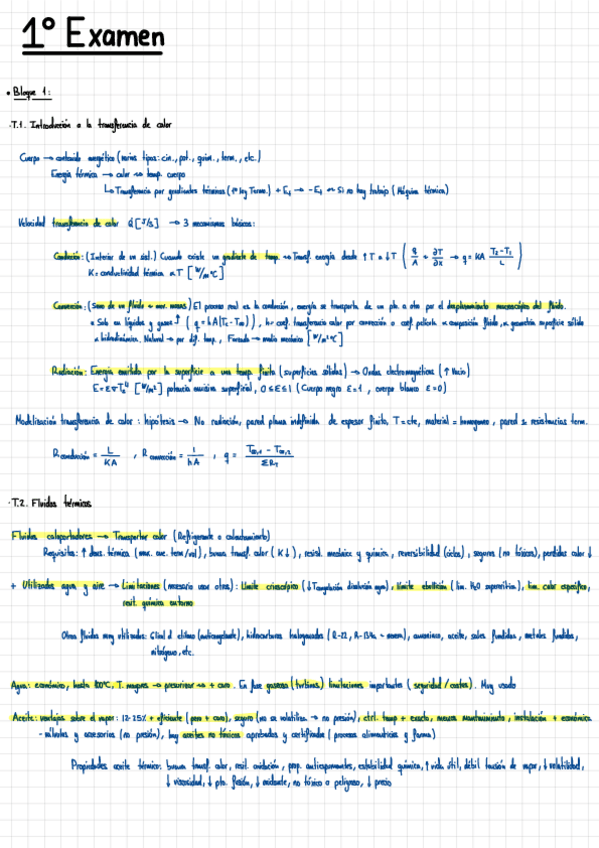 1º Examen
• Bloque 1:
· T.1. Introducción a la transferencia de calor
Cuerpo → contenido energético (varios tipos: cin., pot., quim., term., etc.)
Energía térmica → calor ↔ temp. cuerpo
↳ Transferencia por gradientes térmicos (1ª ley Termo.) + E₁ → -E₁ Si no hay trabajo (Máquina térmica)
Velocidad transferencia de calor Q̇ [J/s] → 3 mecanismos básicos:
Conducción: (Interior de un sist.) Cuando existe un gradiente de temp. → Transf. energía desde ↑T a ↓T ( q/A ∂T/∂x → q = KA T₂-T₁/L )
K = conductividad térmica α T [W/m°C]
Convección: (Seno de un fluido + mov. masas) El proceso real es la conducción, energía se transporta de un pto. a otro por el desplazamiento macroscópico del fluido.
• Solo en líquidos y gases ↑ ( q = hA(Ts - T∞) ), h = coef. transferencia calor por convección o coef. película α composición fluido, α geometría superficie sólido
α hidrodinámica. Natural → por dif. temp., Forzada → medio mecánico [W/m²°C]
Radiación: Energía emitida por la superficie a una temp. finita (superficies sólidas) → Ondas electromagnéticas (↑ Vacío)
E = εσTs⁴ [W/m²] potencia emisiva superficial, 0≤ε≤1 (Cuerpo negro ε=1, cuerpo blanco ε=0)
Modelización transferencia de calor: hipótesis → No radiación, pared plana indefinida de espesor finito, T = cte, material = homogéneo, pared = resistencias term.
R conducción = L/KA , R convección = 1/hA , q = T∞,1 - T∞,2/ΣRT
· T.2. Fluidos térmicos
Fluidos caloportadores → Transportar calor (Refrigerante o calentamiento)
Requisitos: ↑ térmica (term/vol), buena transf. calor (K↓), resist. mecánica y química, reversibilidad (ciclos), seguros (no tóxicos), perdidas calor ↓
+ Utilizados agua y aire → Limitaciones (necesario usar otros): Límite crioscópico (↓Tcongelación disolución agua), límite ebullición (lim. H₂O supercrítica), lim. calor específico,
resit. química entorno
Otros fluidos muy utilizados: Glicol d etileno (anticongelante), hidrocarburos halogenados (R-22, R-134a), amoniaco, aceite, sales fundidas, metales fundidos,
nitrógeno, etc.
Agua: económico, hasta 100°C, T. mayores → presurizar → + caro. En fase gaseosa (turbinas) limitaciones importantes (seguridad/costes). Muy usado
Aceite: ventajas sobre el vapor: 12-25% + eficiente (pero + caro), seguro (no se volatiliza → no presión), ctrl. temp + exacto, menor mantenimiento, instalación + económica
- válvulas y accesorios (no presión), hay aceites no tóxicos aprobados y certificados (procesos alimentarios y farma)
Propiedades aceite térmico: buena transf. calor, resit. oxidación, prop. antiespumantes, estabilidad química, ↑ vida útil, débil tensión de vapor, ↓ volatilidad,
↓ viscosidad, ↓ pto. fusión, ↓ oxidante, no tóxico o peligroso, ↓ precio